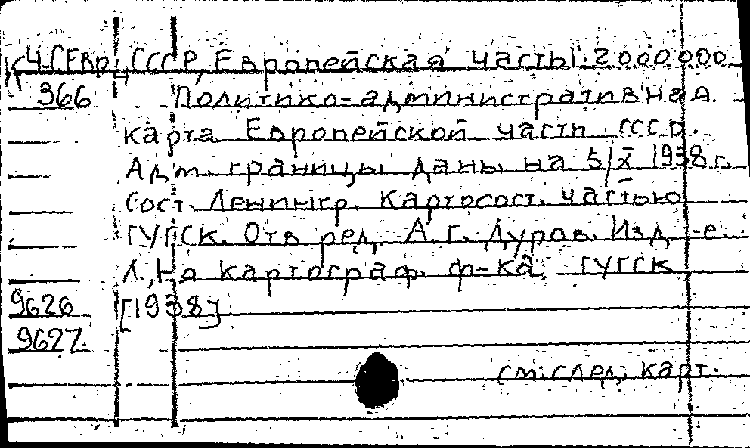 К4.ГЕвр СССР, Европейская часть 1:2000000
366 Политико-административная
карта Европейской части СССР.
Адм. границы даны на 5/X 1938 г.
Сост. Ленингр. Картосост. частью
ГУГСК. Отв ред. А. Г. Дуров. Изд -е.
Л., На картограф. ф-ка ГУГСК
9626 [1938]
9627.
см. след. карт.